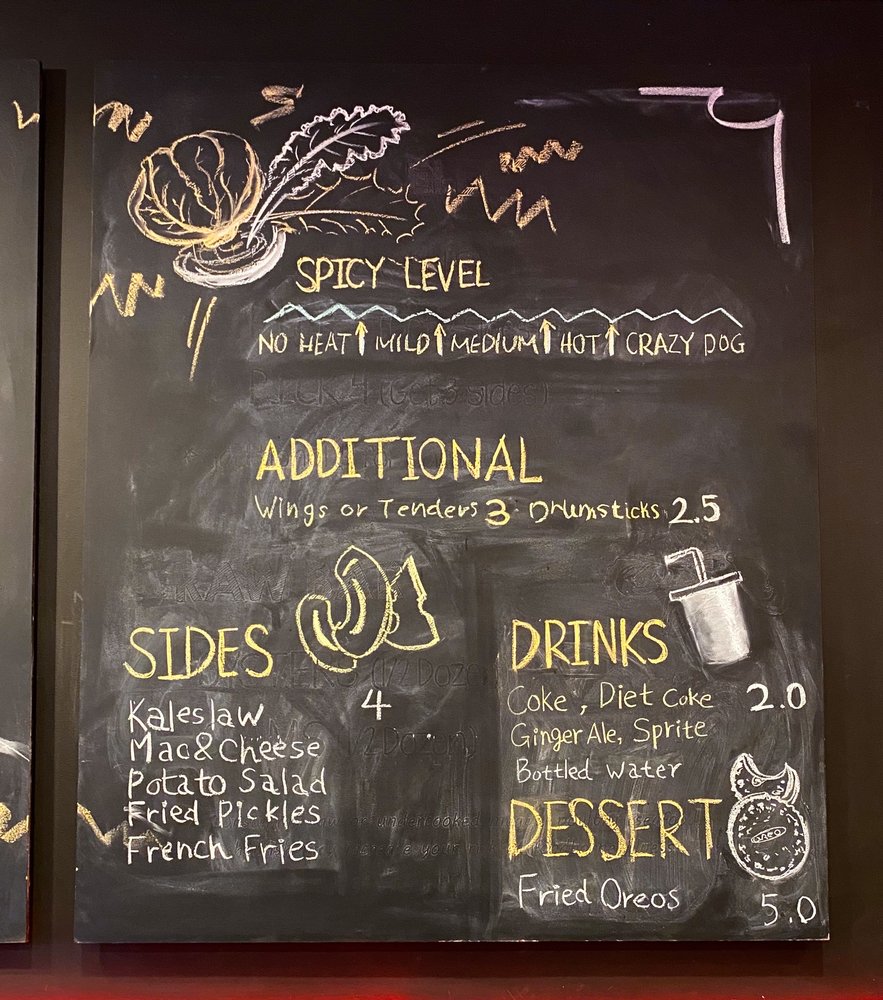 SPICY LEVEL
NO HEAT↑MILD↑MEDIUM↑HOT↑CRAZY DOG
PICK 4 (Get 3 sides)
ADDITIONAL
Wings or Tenders 3 Drumsticks 2.5
RAW
SIDES
4
Kaleslaw
Mac&Cheese
Potato Salad
Fried Pickles
French Fries
(1/2 Dozen)
undercooked
your
DRINKS
Coke, Diet Coke 2.0
Ginger Ale, Sprite
Bottled water
DESSERT
OREO
Fried Oreos
5.0